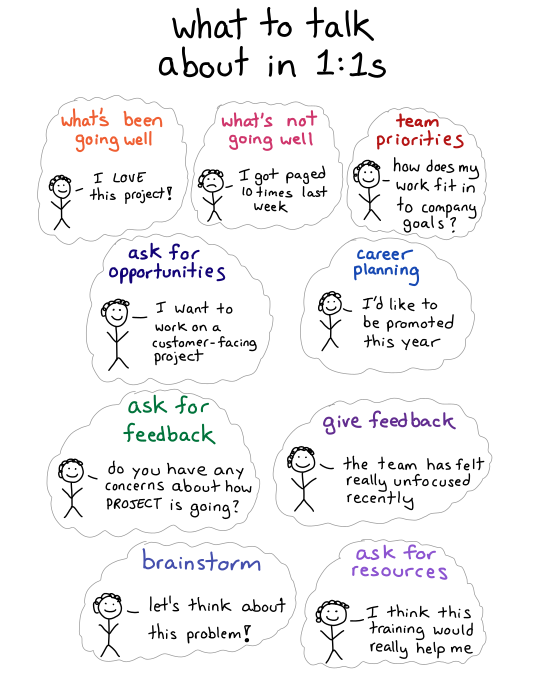 what to talk
about in 1:1s
what's been
going well
I LOVE
this project!
what's not
going well
I got paged
10 times last
week
team
priorities
how does my
work fit in
to company
goals?
ask for
opportunities
I want to
work on a
customer-facing
project
career
planning
I'd like to
be promoted
this year
ask for
feedback
do you have any
concerns about how
PROJECT is going?
give feedback
the team has felt
really unfocused
recently
brainstorm
let's think about
this problem!
ask for
resources
I think this
training would
really help me